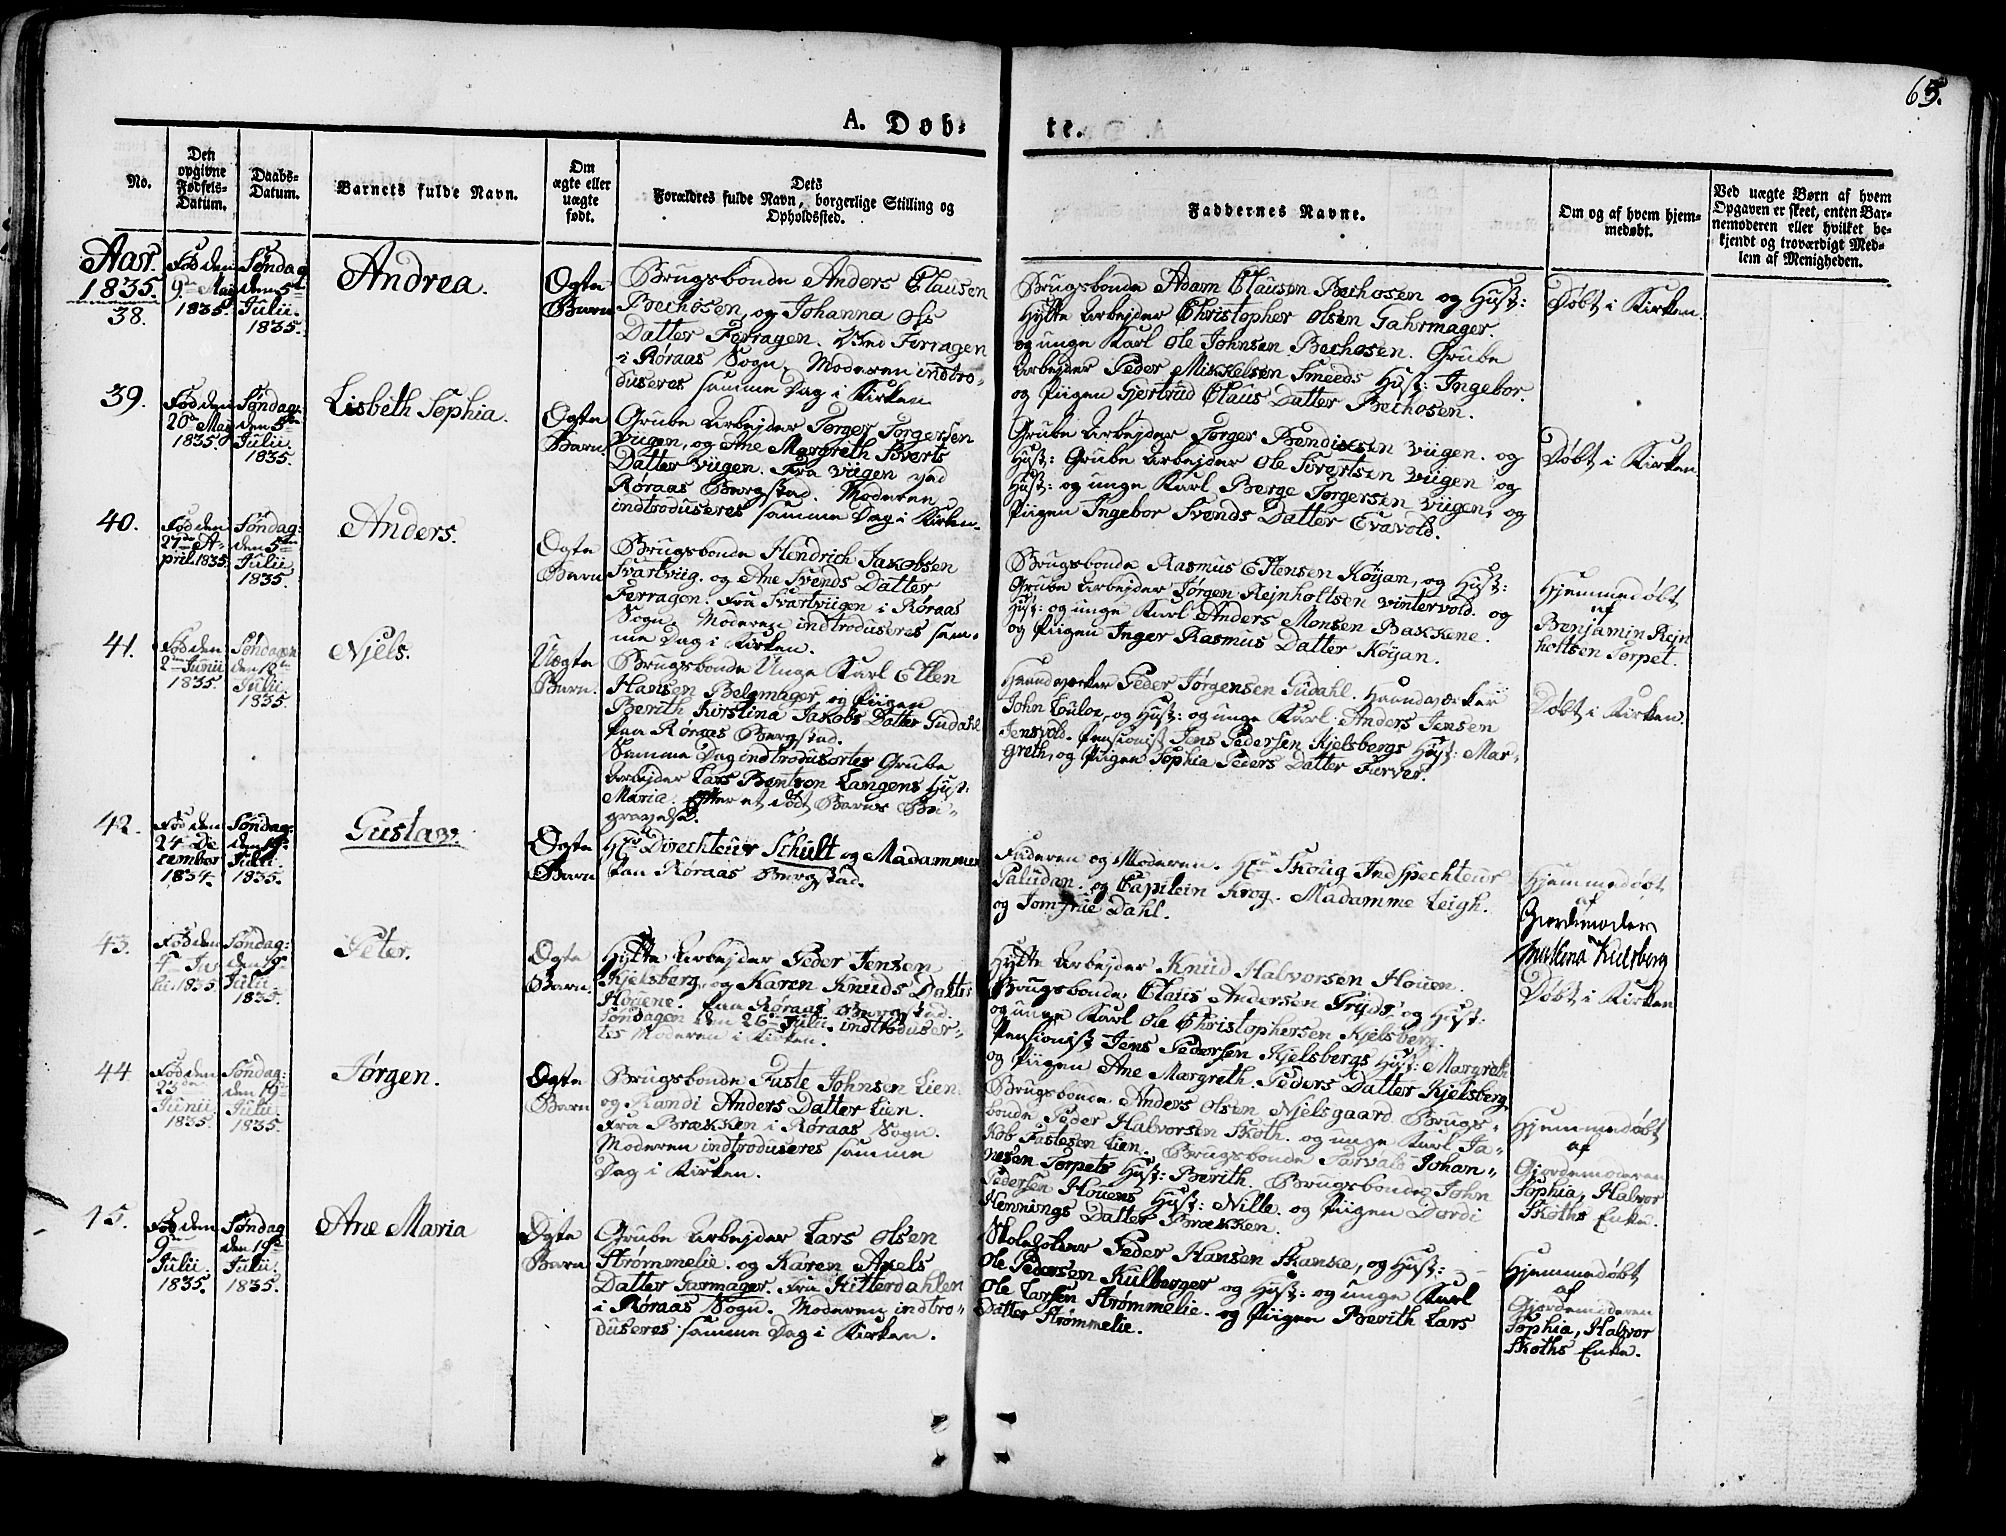 65.
A. Døb-
te.
No.
Den
opgivne
Fødsels-
Datum.
Daabs-
Datum.
Barnets fulde Navn.
Om
ægte eller
uægte
født.
Dets
Forældres fulde Navn, borgerlige Stilling og
Opholdssted.
Faddernes Navne.
Om og af hvem hjem-
medøbt.
Ved uægte Børn af hvem
Opgaven er skeet, enten Bar-
nemoderen eller hvilket be-
kjendt og troværdigt Med-
lem af Menigheden.
Aar.
1835.
38.
Fød den
9de Maij
1835.
Søndag
den 5te
Julii.
1835.
Andrea.
Ægte
Barn
Brugsbonde Anders Clausen
Bechosen, og Johanna Ols
Datter Ferragen. Ved Ferragen
i Røraas Sogn. Moderen indtro-
duseres samme Dag i Kirken
Brugsbonde Adam Clausen Bechosen og Hust:
Hytte Arbejder Christopher Olsen Gahrmager
og unge Karl Ole Johnsen Bechosen. Grube
Arbejder Peder Mikkelsen Smeeds Hust: Ingebor.
og Piigen Gjertrud Claus Datter Bechosen.
Døbt i Kirken.
39.
Fød den
20de Maij
1835.
Søndag:
den 5te
Julii.
1835.
Lisbeth Sophia.
Ægte
Barn.
Grube Arbejder Torger Torgersen
Viigen, og Ane Margreth Sverts
Datter Viigen. Fra Viigen ved
Røraas Bergstad. Moderen
indtroduseres samme Dag i Kirken.
Grube Arbejder Torger Bendixsen Viigen. og
Hust: Grube Arbejder Ole Svertsen Viigen og
Hust: og unge Karl Berge Torgersen Viigen, og
Piigen Ingebor Svends Datter Evavold.
Døbt i Kirken
40.
Fød den
27de A-
pril. 1835.
Søndag:
den 5te
Julii
1835.
Anders.
Ægte
Barn
Brugsbonde Hendrich Jakobsen
Svartviig. og Ane Svends Datter
Ferragen. Fra Svartviigen i Røraas
Sogn. Moderen indtroduseres sam-
me Dag i Kirken.
Brugsbonde Rasmus Estensen Køijan, og Hust:
Grube Arbejder Jørgen Rejnholtsen Vintervold. og
Hust: og unge Karl Anders Monsen Bakkene.
og Piigen Inger Rasmus Datter Køijan.
Hjemmedøbt
af
Benjamin Rejn
holtsen Torpet.
41.
Fød den
2den Junii
1835.
Søndagen
den 12te
Julii
1835.
Njels.
Uægte
Barn.
Brugsbonde Unge Karl Ellen
Hansen Belgmager, og Piigen
Berith Kirstina Jakobs Datter Gudahl
Paa Røraas Bergstad.
Samme Dag indtrodusertes Grube
Arbejder Lars Bentsen Langens Hust:
Maria. Efter et død Barns Be-
gravelse.
Haandværker Peder Jørgensen Gudahl. Haandværker
John, og Hust: og unge Karl Anders Jensen
Jensvold. Pensionist Jens Pedersen Kjelsbergs Hust: Mar-
greth, og Piigen Sophia Peders Datter Furver.
Døbt i Kirken.
42.
Fød den
24de De
cember
1834.
Søndag:
den 19de
Julii.
1835.
Gustav.
Ægte
Barn
Hr Direchteur Schult og Madammen
Paa Røraas Bergstad.
Faderen og Moderen. Hr Skoug Indspechteur
Paludan. og Capitein Krog. Madamme Leigh.
og Jomfrue Dahl.
Hjemmedøbt
af
Gjordemoder
Kulsberg
43.
Fød den
4de Ju
lii. 1835
Søndag:
den 19de
Julii.
1835.
Peter.
Ægte
Barn.
Hytte Arbejder Peder Jensen
Kjelsberg, og Karen Knuds Datter
Houene. Paa Røraas Bergstad.
Søndagen den 26de Julii indtroduser-
tes Moderen i Kirken.
Hytte Arbejder Knud Halvorsen Houen.
Brugsbonde, Claus Andersen Tryds, og Hust:
og unge Karl Ole Christophersen Kjelsberg.
Pensionist Jens Pedersen Kjelsbergs Hust: Margrethe
og Piigen Ane Margreth. Peders Datter Kjelsberg.
Døbt i Kirken
44
Fød den
23de
Junii
1835.
Søndag:
den 19de
Julii.
1835.
Jørgen.
Ægte
Barn
Brugsbonde Faste Johnsen Lien.
og Randi Anders Datter Lien.
Fra Brækken i Røraas Sogn.
Moderen indtroduseres samme
Dag i Kirken.
Brugsbonde Anders Olsen Njelsgaard. Brugs-
bonde Peder Halvorsen Skoth. og unge Karl Ja-
kob Fastesen Lien. Brugsbonde Tarvald Johan-
nesen Torpets Hust: Berith. Brugsbonde John
Pedersen Houens Hust: Nille. og Piigen Dordi
Hennings Datter Brækken.
Hjemmedøbt
af
Gjordemoderen
Sophia, Halvor
Skoths Enke.
45.
Fød den
9de
Julii.
1835.
Søndag
den 19de
Julii.
1835.
Ane Maria
Ægte
Barn
Grube Arbejder Lars Olsen
Strømmelie. og Karen Axels
Datter Garmager. Fra Hitterdahlen
i Røraas Sogn. Moderen indtro-
duseres samme Dag i Kirken.
Skoleholder Peder Hansen Skanke, og Hust:
Ole Pedersen Kulberger og Hust: og unge Karl
Ole Larsen Strømmelie. og Piigen Berith Lars
Datter Strømmelie.
Hjemmedøbt
af
Gjordemoderen
Sophia, Halvor
Skoths Enke.